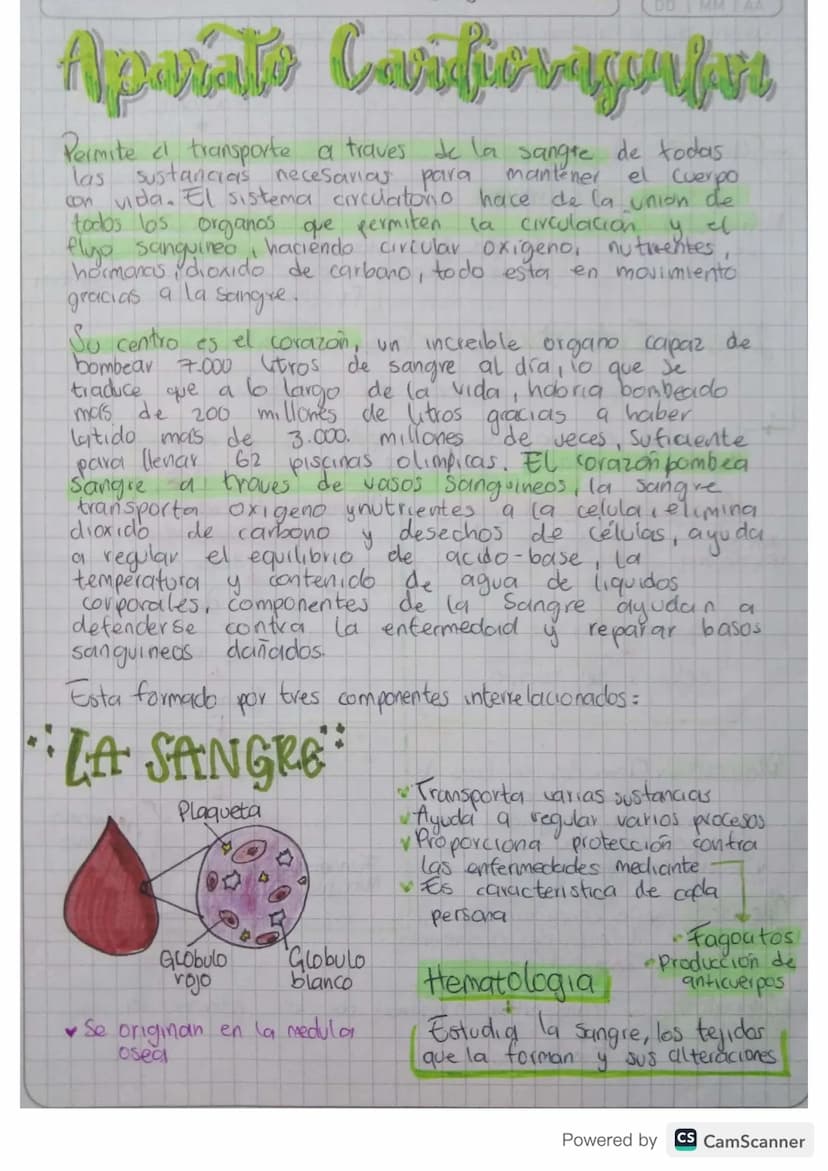 DD MM AA
Aparato Cardiovascular
Permite el transporte a traves de la sangre de todas
las sustancias necesarias para mantener el cuerpo
con vida. El sistema circulatorio hace de la union de
todos los organos que permiten la circulacion y el
flujo sanguineo, haciendo circular oxigeno, nutrientes,
hormonas, dioxido de carbono, todo esta en movimiento
gracias a la sangre.
Su centro es el corazon, un increible organo capaz de
bombear 7.000 litros de sangre al día, lo que se
traduce que a lo largo de la vida, habria bombeado
mas de 200 millones de litros gracias a haber
latido mas de 3.000. millones de veces, suficiente
para llenar 62 piscinas olimpicas. El corazon bombea
sangre a traves de vasos sanguineos, la sangre
transporta oxigeno y nutrientes a la celula, elimina
dioxido de carbono y desechos de células, ayuda
a regular el equilibrio de acido-base, la
temperatura y contenido de agua de liquidos
corporales, componentes de la sangre ayudan a
defenderse contra la enfermedad y reparar basos
sanguineos dañados.
Esta formado por tres componentes interrelacionados:
LA SANGRE
Plaqueta
Globulo
rojo
Globulo
blanco
Se originan en la medula
osea
Transporta varias sustancias
Ayuda a regular varios procesos
Proporciona protección contra
las enfermedades mediante
Es caracteristica de cada
persona
Fagocitos
Producción de
anticuerpos
Hematologia
Estudia la sangre, los tejidos
que la forman y sus alteraciones
Powered by CS CamScanner